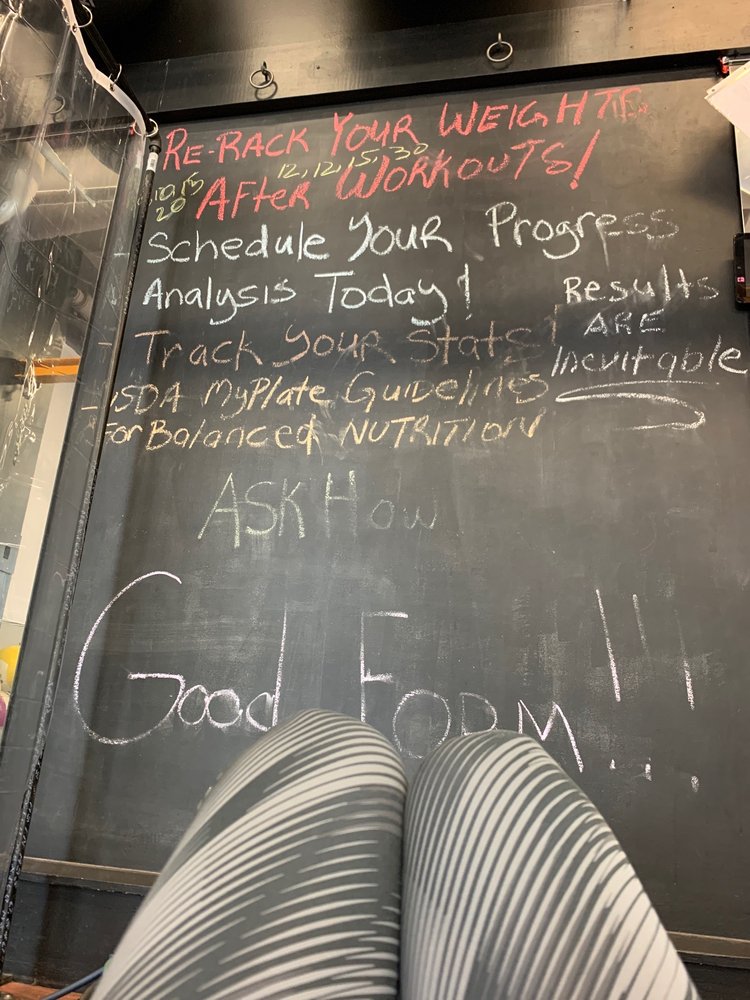 RE-RACK YOUR WEIGHTS
12, 12, 15, 30
20
AFTER WORKOUTS!
- Schedule Your Progress
Analysis Today!
Results
ARE
Inevitable
- Track Your Stats!
- USDA MyPlate Guidelines
For Balanced NUTRITION
ASK How
Good FORM!!!